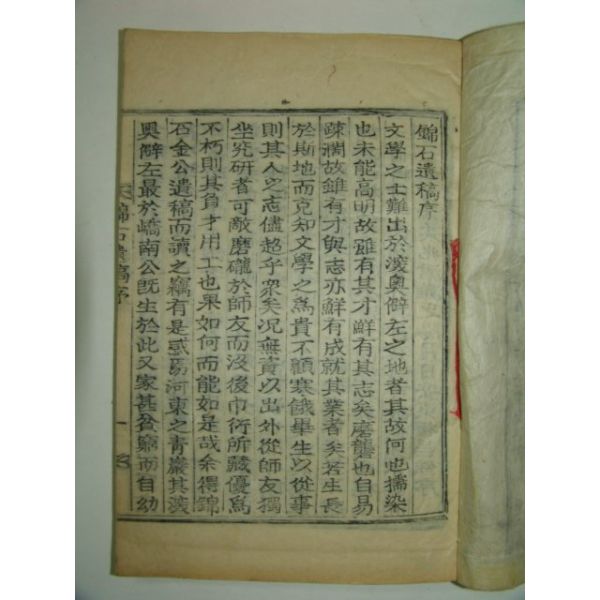 錦石遺稿序
文學之士難出於深奧僻左之地者其故何也擩染
也未能高明故雖有其才鮮有其志矣磨礱也自易
疎濶故雖有才與志亦鮮有成就其業者矣若生長
於斯地而克知文學之爲貴不顧寒餓畢生以從事
則其人之志儘超乎衆矣況無資以出外從師友獨
坐究研者可敵磨礲於師友而沒後巾衍所藏優爲
不朽則其負才用工也果如何而能如是哉余得錦
石金公遺稿而讀之竊有是感焉河東之靑巖其深
奧僻左最於嶠南公旣生於此又家甚貧窮而自幼
錦石遺稿序
一